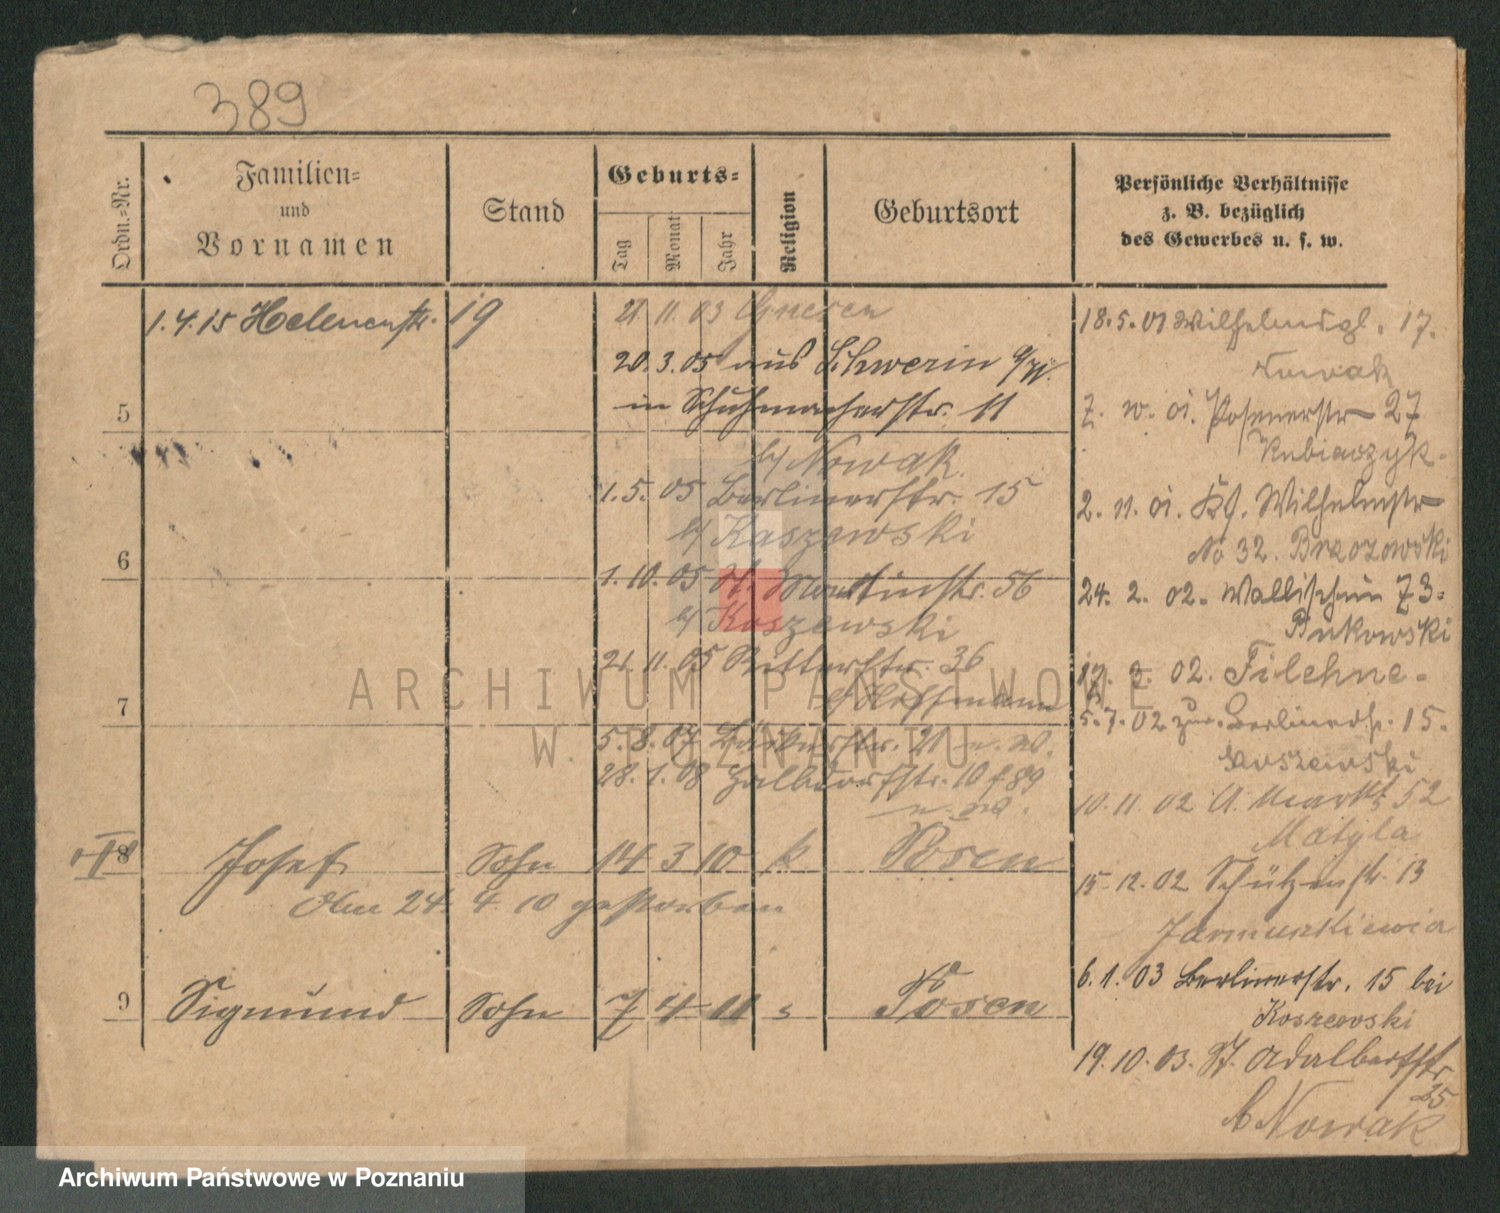 389
Ordn.-Nr.
Familien-
und
Vornamen
Stand
Geburts-
Tag
Monat
Jahr
Religion
Geburtsort
Persönliche Verhältnisse
z. B. bezüglich
des Gewerbes u. s. w.
1.4.15 Helenenstr. 19
21 11 03 Gnesen
20.3.05 aus Schwerin a/W.
in Schuhmacherstr. 11
b/ Nowak
1.5.05 Berlinerstr. 15
b/ Kaszewski
1.10.05 St. Martinstr. 56
b/ Koszewski
21.11.05 Ritterstr. 36
b/ Hoffmann
5.8.07 21
28.1.08 Halbdorfstr. 10
5
6
7
8 Josef Sohn 14 3 10 k Posen
24. 4. 10 gestorben
9 Sigmund Sohn 7 4 11 Posen
18.5.01 17.
Nowak
01. Posenerstr 27
Kubiaczyk.
2. 11. 01. Wilhelmstr
No 32. Brzozowski
24. 2. 02. Wallischei 73.
Bukowski
02. Filehne.
5.7.02 zur. Berlinerstr. 15.
Koszewski
10.11.02 A. Markt 52
Matyla
15.12.02 Schützenstr. 13
6.1.03 Berlinerstr. 15 bei
Koszewski
19.10.03. St. Adalbertstr
25
b Nowak
ARCHIWUM PAŃSTWOWE
W POZNANIU
Archiwum Państwowe w Poznaniu